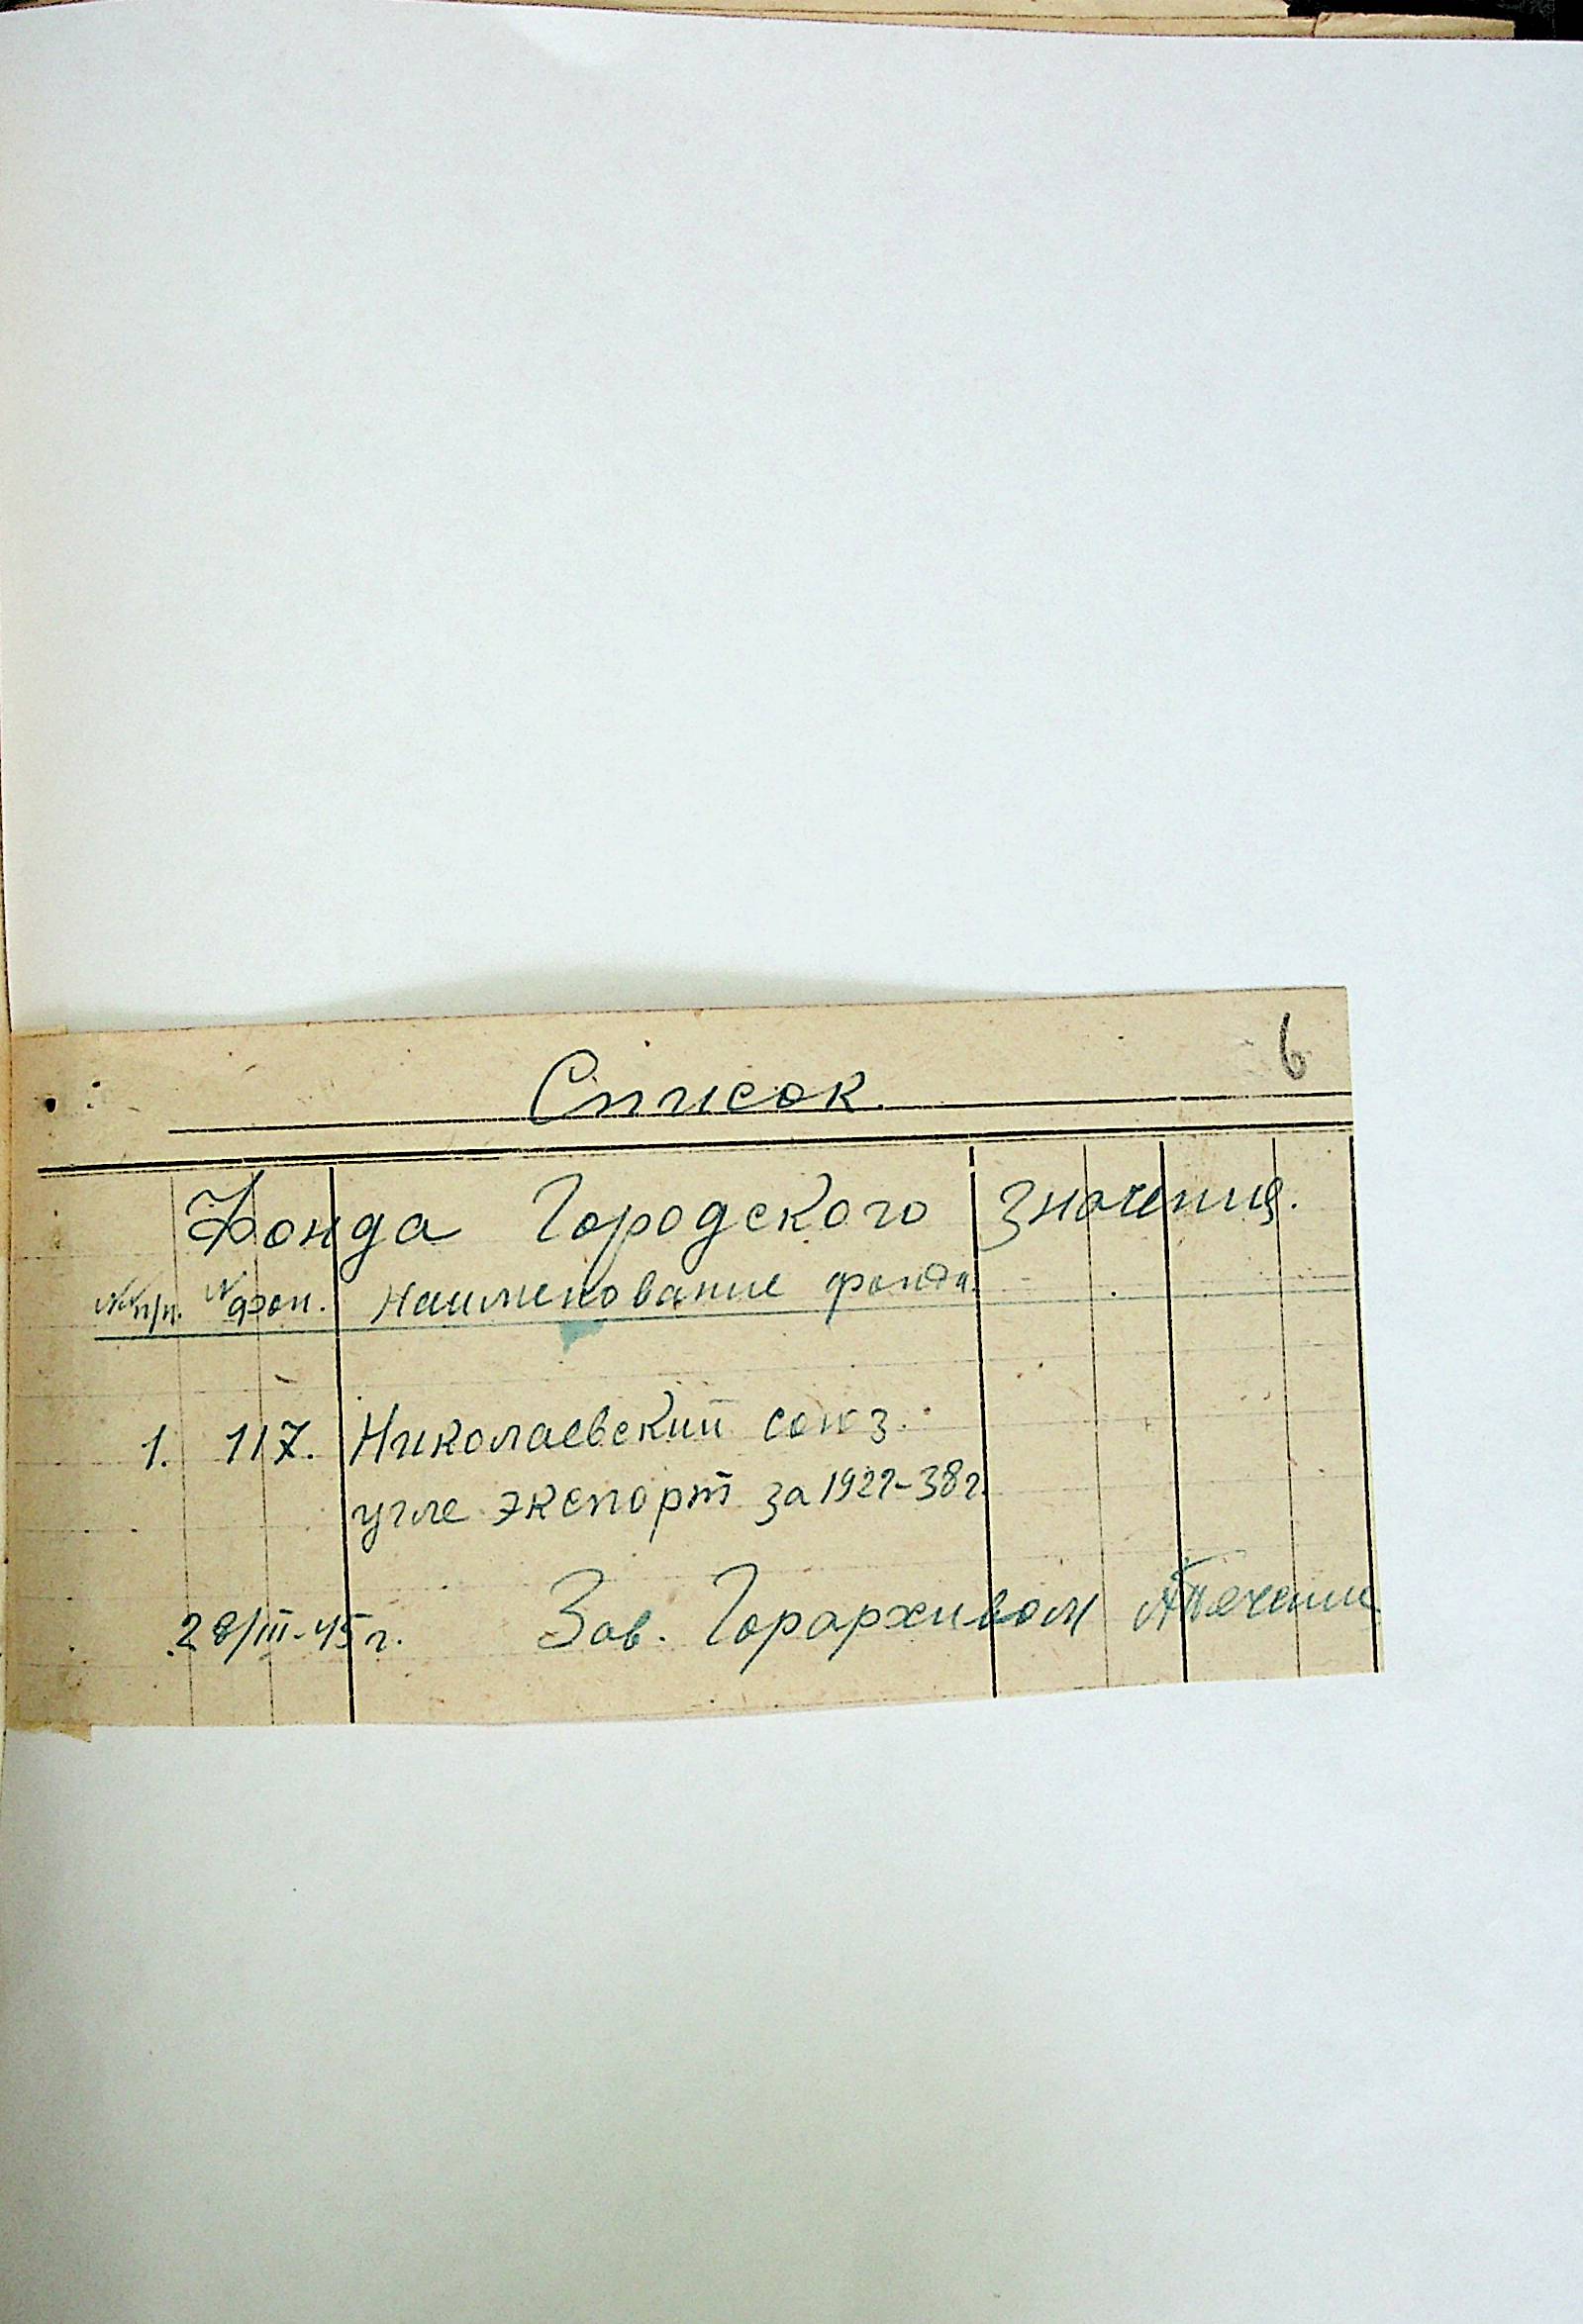 6
Список.
Фонда Городского значения.
№№ п/п. № фон. Наименование фонда.
1. 117. Николаевский союз.
угле экспорт за 1922-38г.
28/III-45г. Зав. Горархивом